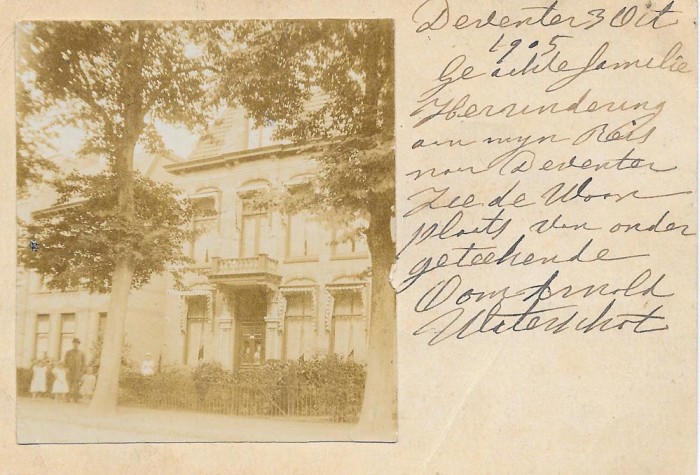 Deventer 3 Oct
1905
Geachte familie
Herrindering
aan myn Reis
naar Deventer
Zee de Woon
plaats van onder
geteekende
Oom Arnold
Waterschot